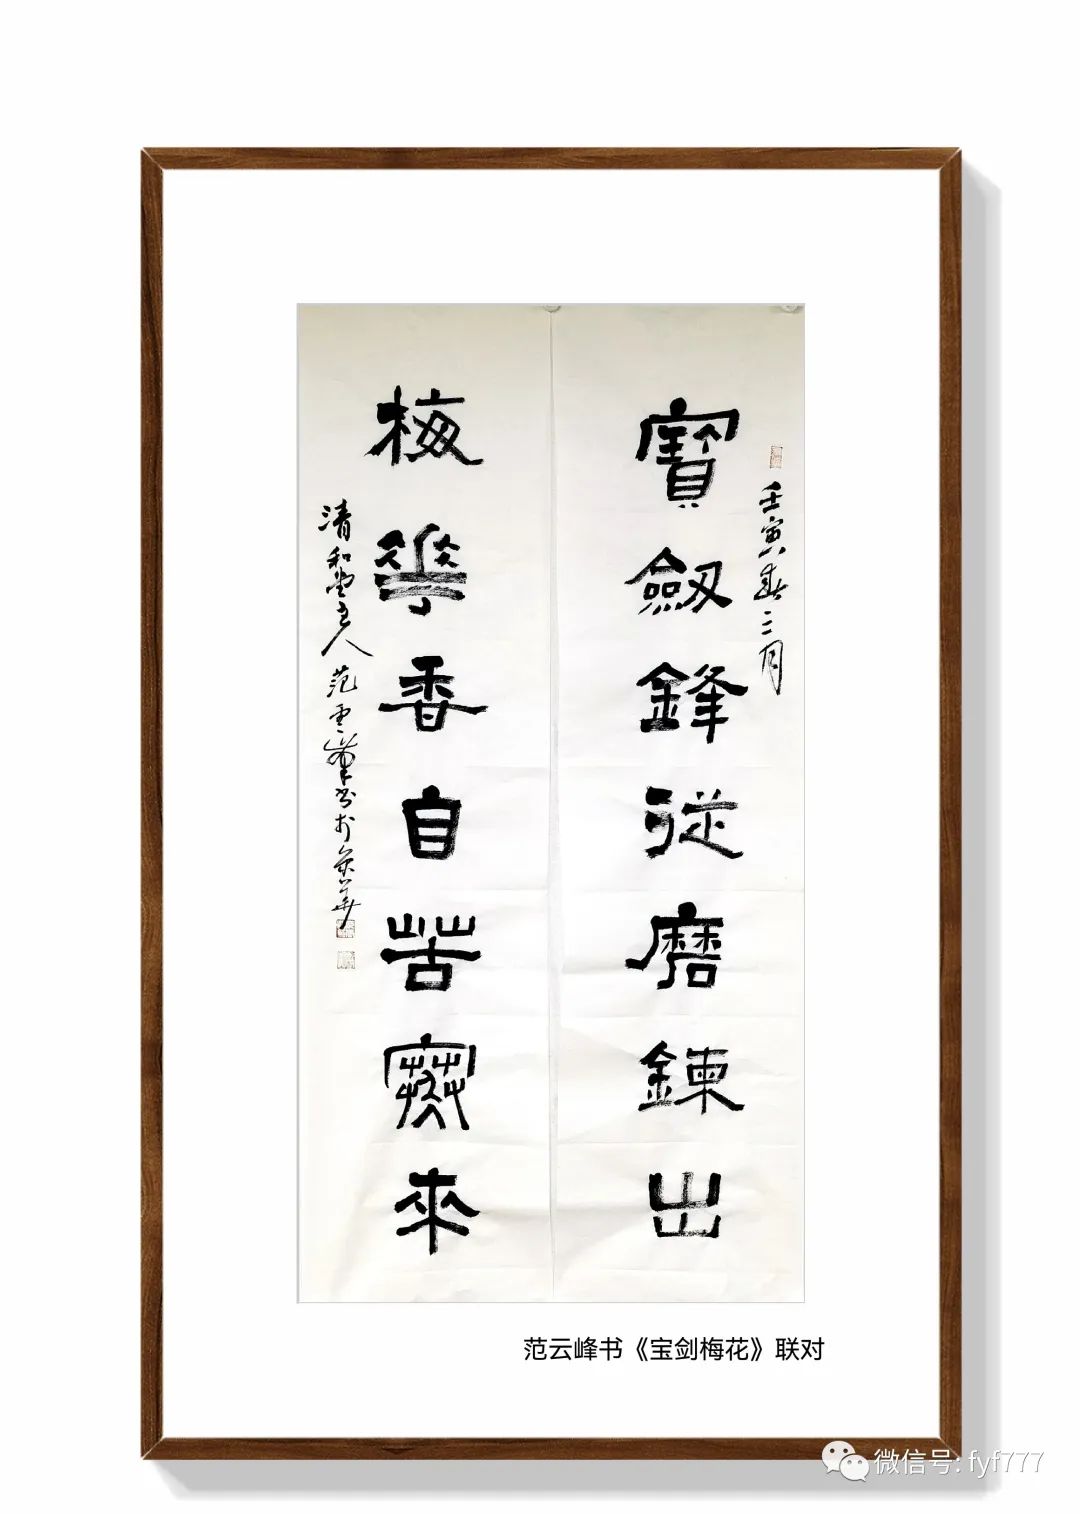 壬寅春三月
寶劔鋒從磨鍊出
梅華香自苦寒來
清和堂主人范雲峰書於京華
范云峰书《宝剑梅花》联对
微信号: fyf777